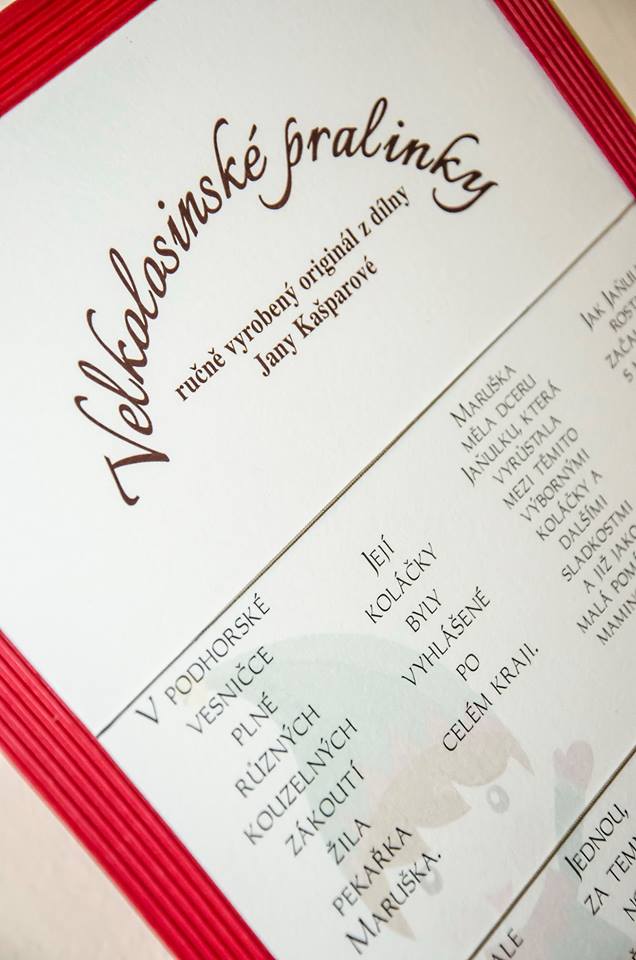 Velkolosinské pralinky
ručně vyrobený originál z dílny
Jany Kašparové
V PODHORSKÉ
VESNIČCE
PLNÉ
RŮZNÝCH
KOUZELNÝCH
ZÁKOUTÍ
ŽILA
PEKAŘKA
MARUŠKA.
JEJÍ
KOLÁČKY
BYLY
VYHLÁŠENÉ
PO
CELÉM KRAJI.
MARUŠKA
MĚLA DCERU
JAŇULKU, KTERÁ
VYRŮSTALA
MEZI TĚMITO
VÝBORNÝMI
KOLÁČKY A
DALŠÍMI
SLADKOSTMI
A JIŽ JAKO
MALÁ
JAK
JEDNOU,
ZA